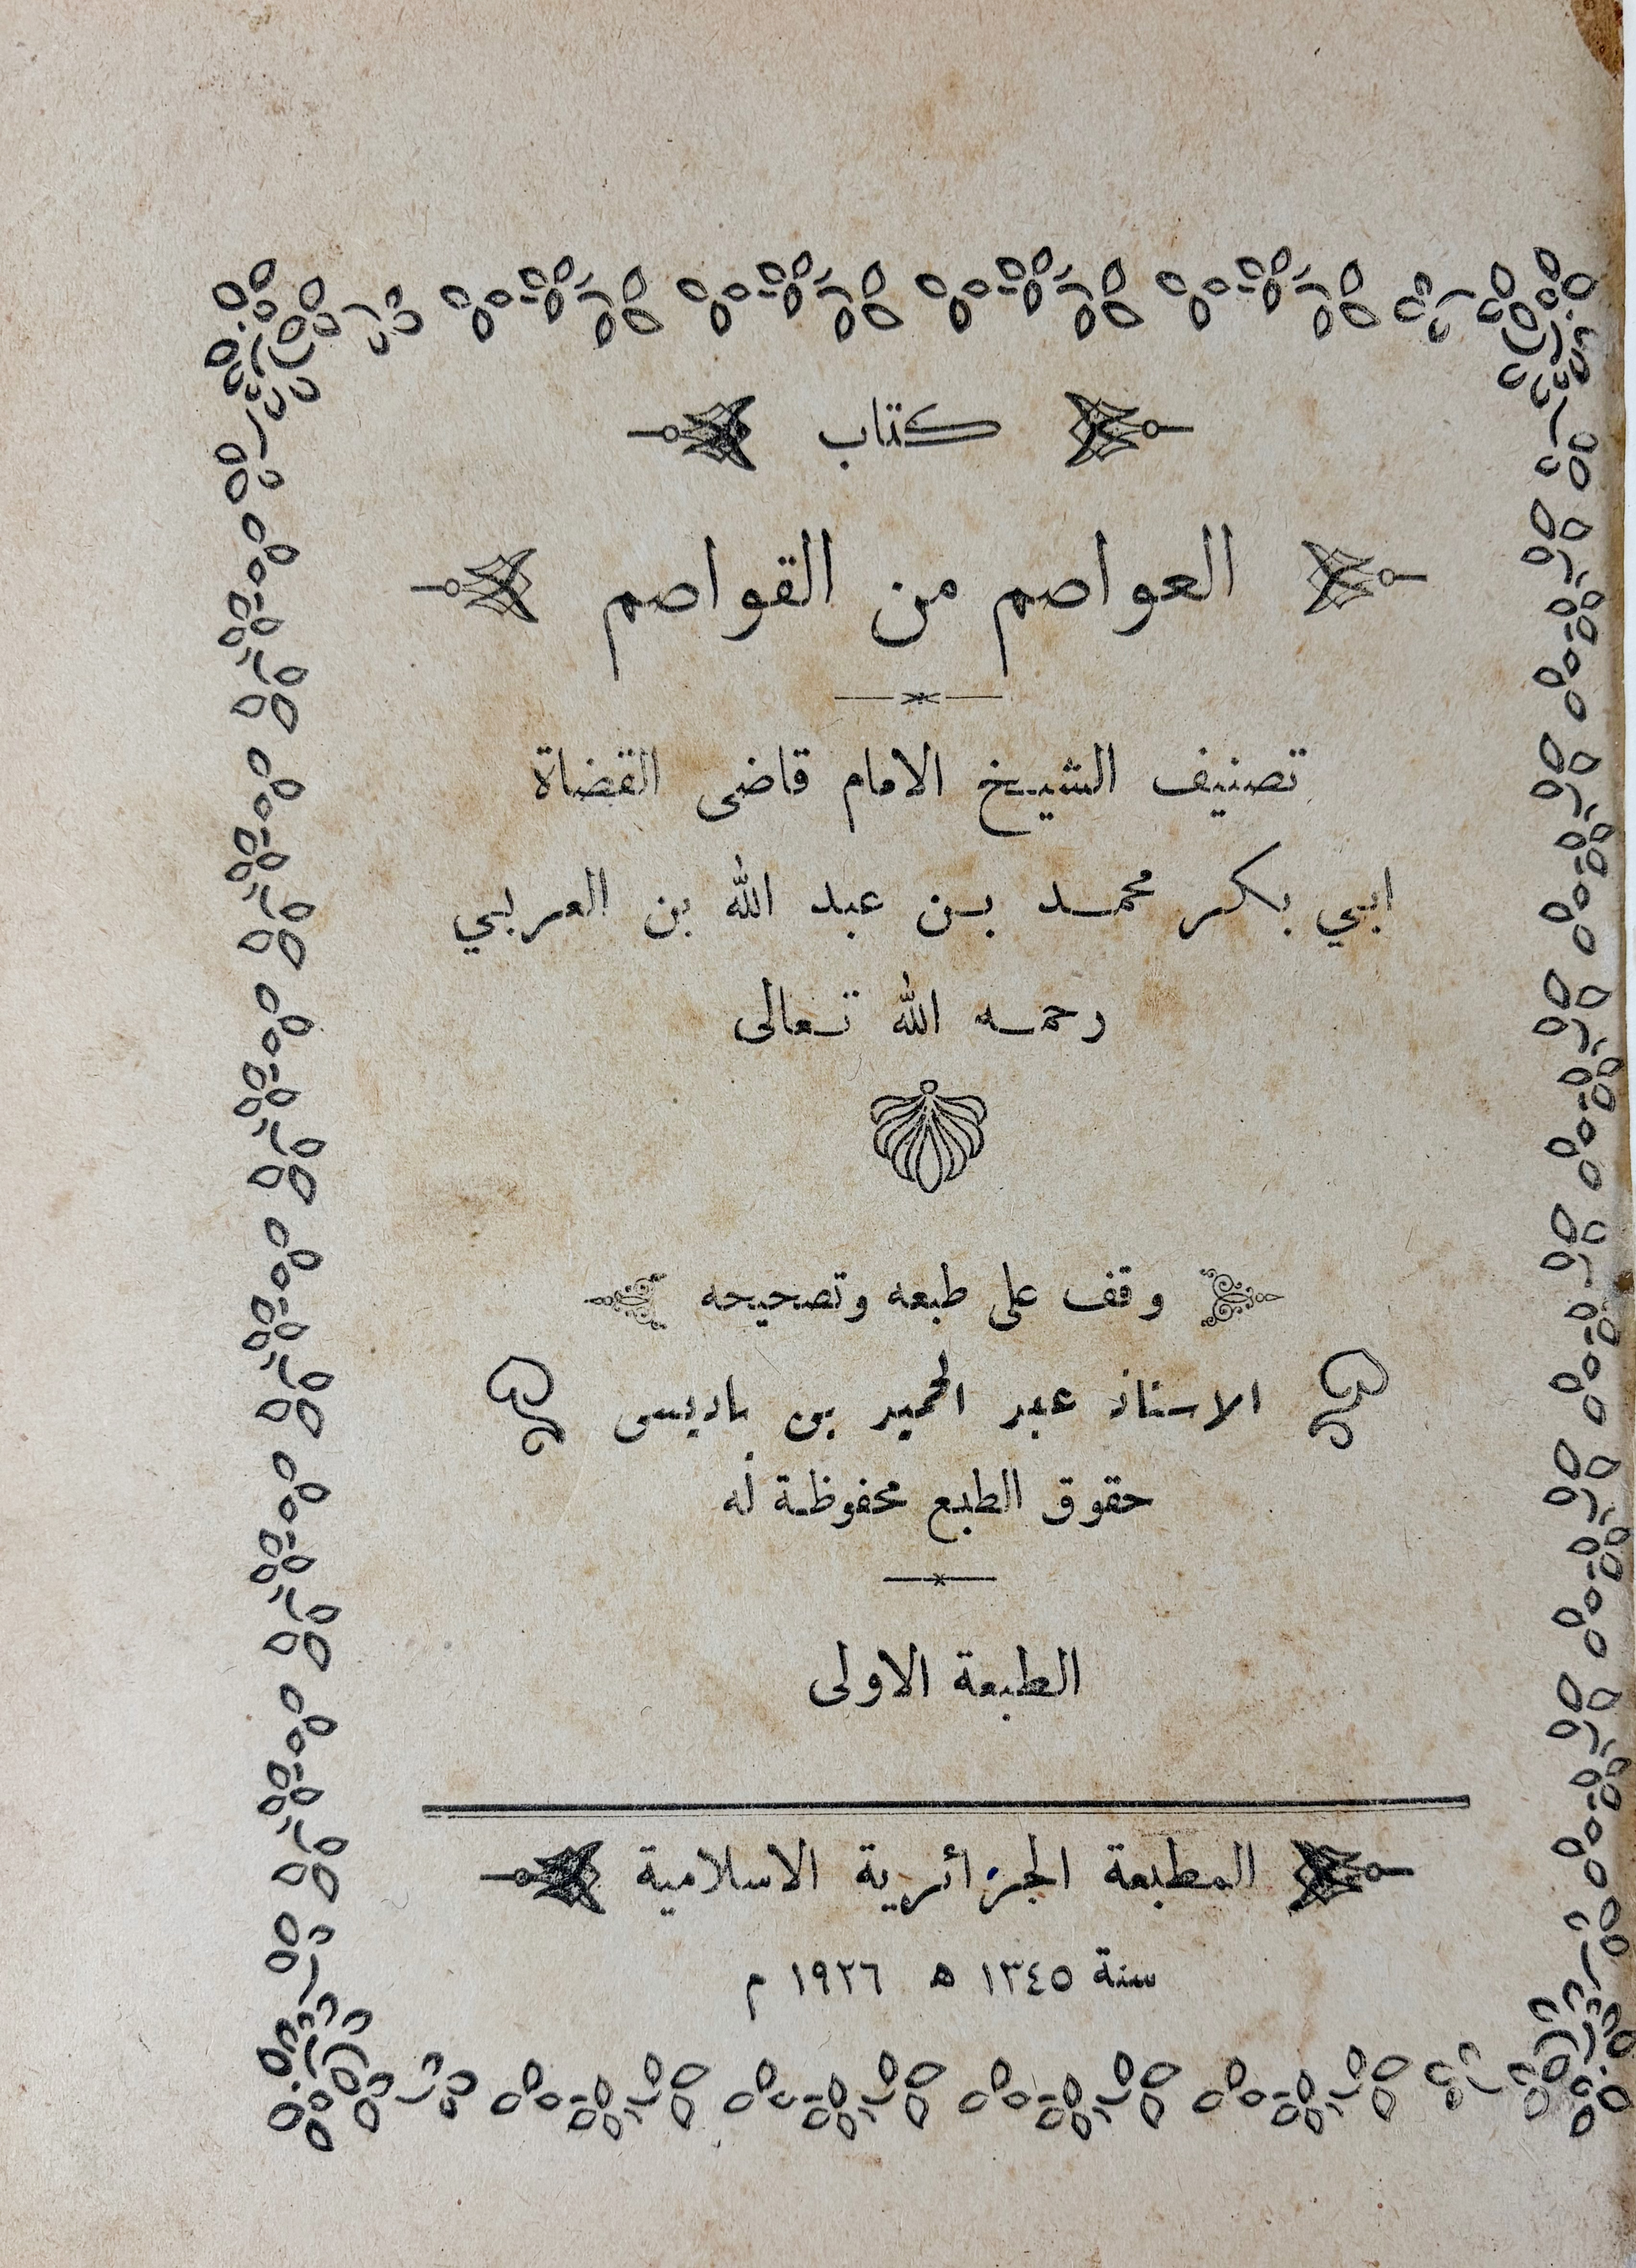 كتاب
العواصم من القواصم
تصنيف الشيخ الامام قاضى القضاة
ابي بكر محمد بن عبد الله بن العربي
رحمه الله تعالى
وقف على طبعه وتصحيحه
الاستاذ عبد الحميد بن باديس
حقوق الطبع محفوظة له
الطبعة الاولى
المطبعة الجزائرية الاسلامية
سنة ١٣٤٥ ه ١٩٢٦ م